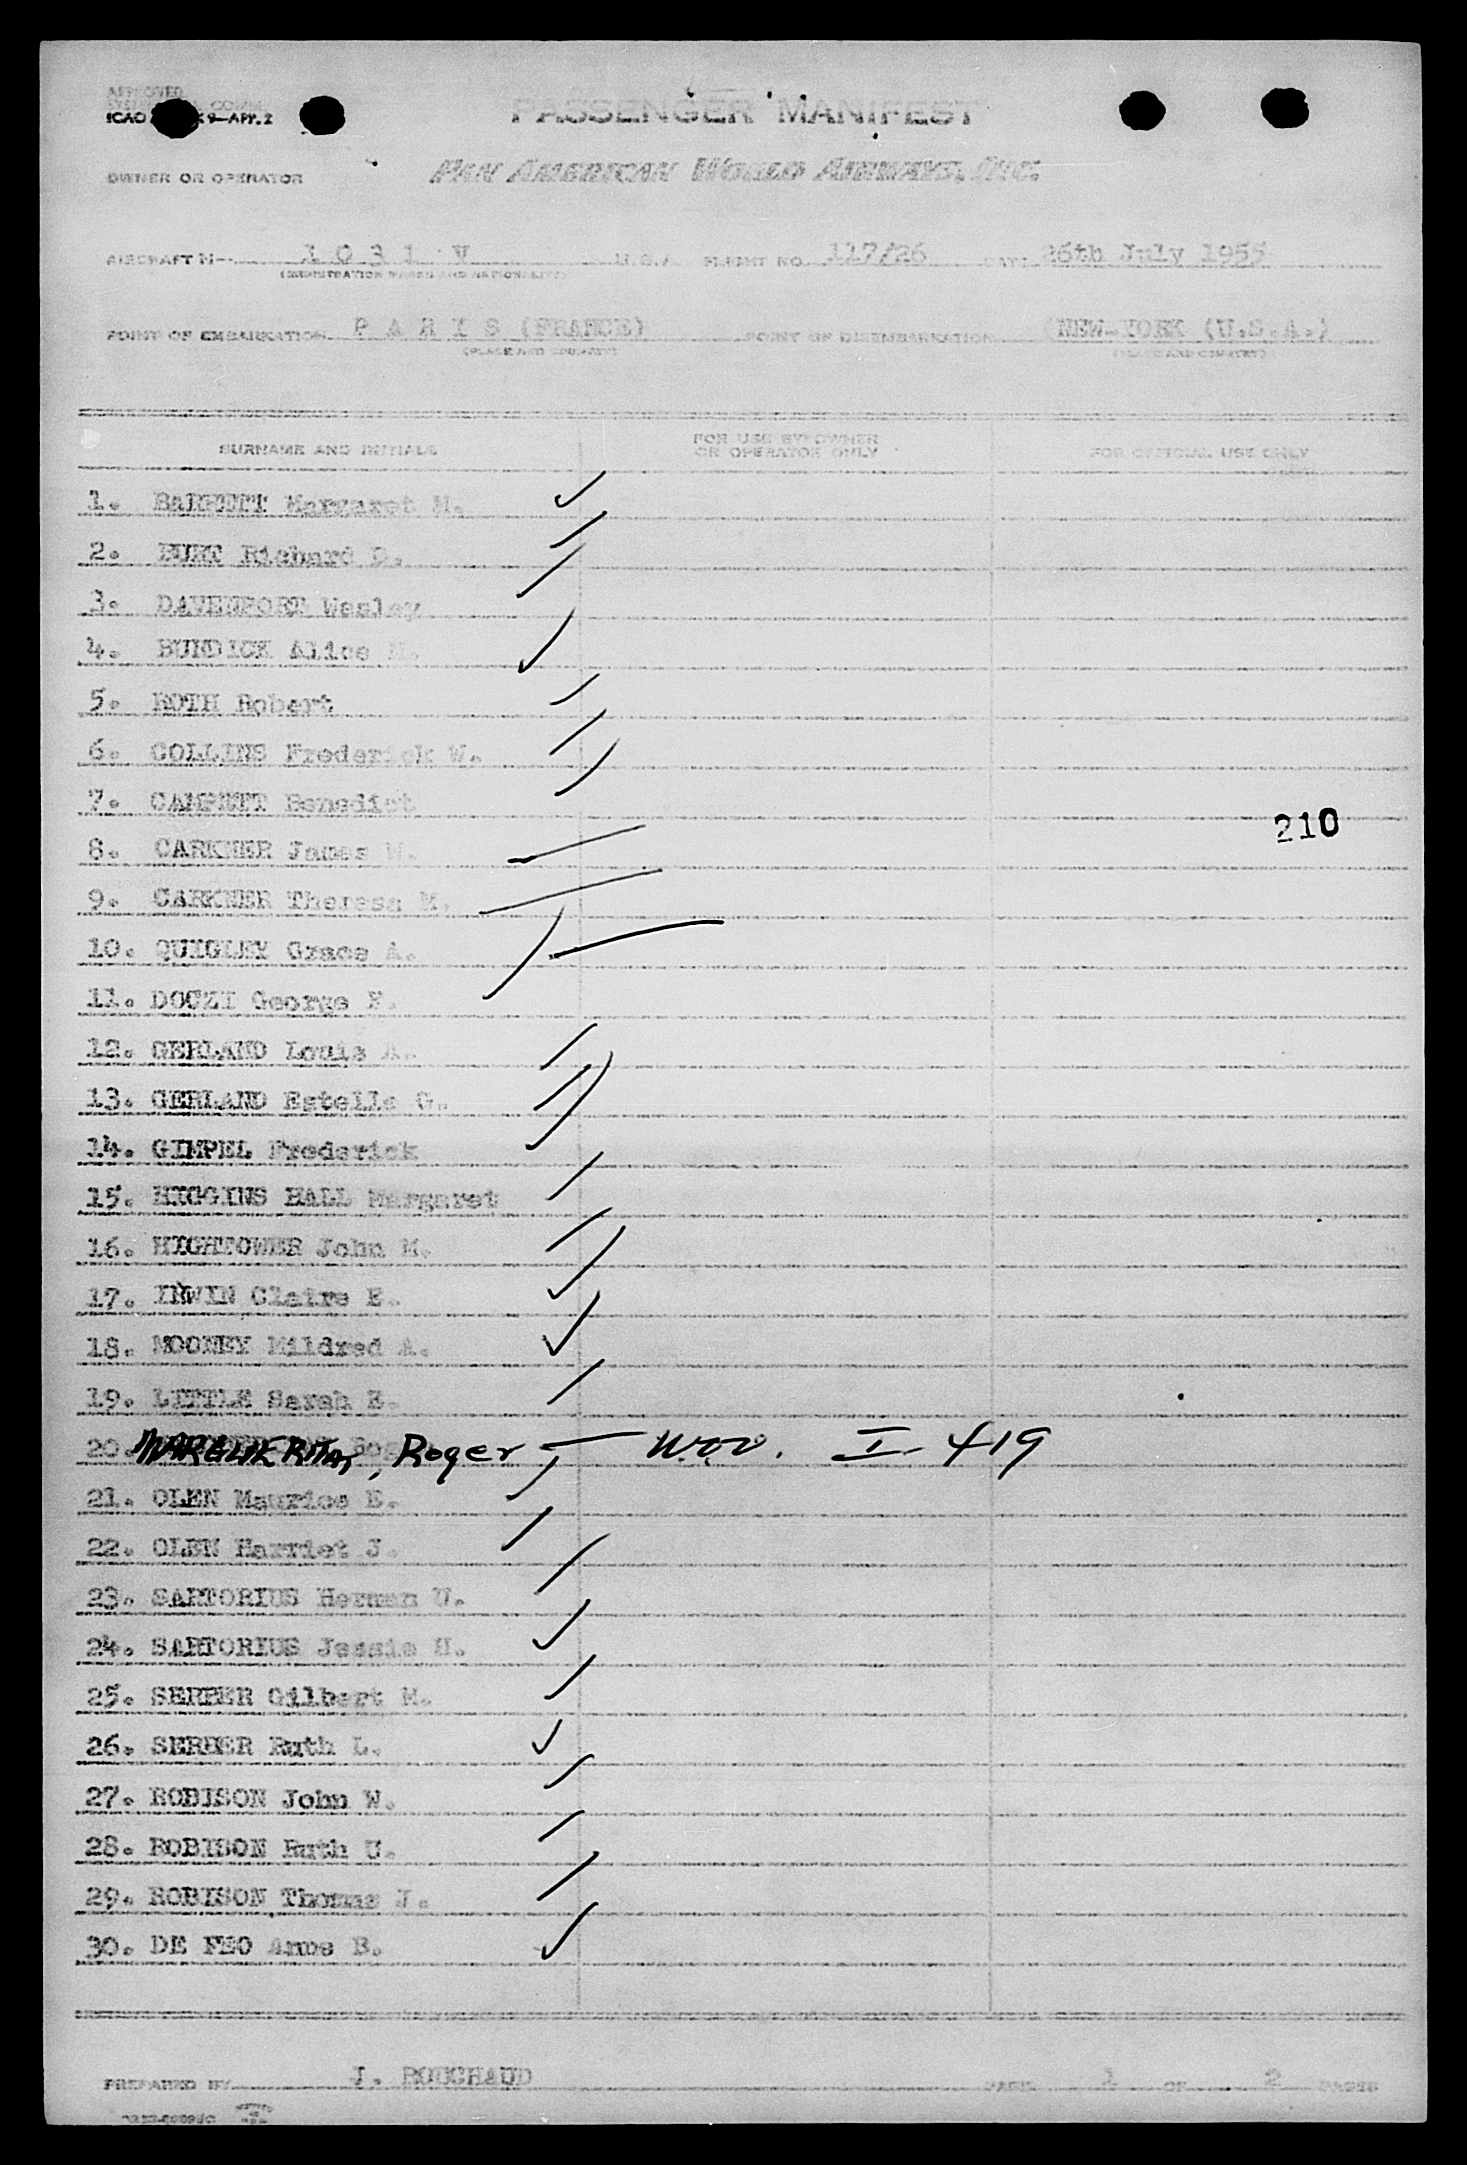 APPROVED
ICAO 9—APP. 2
PASSENGER MANIFEST
OWNER OR OPERATOR PAN AMERICAN WORLD AIRWAYS, INC.
AIRCRAFT N— 1 0 3 1 V U.S.A. FLIGHT NO. 117/26 DATE 26th July 1955
POINT OF EMBARKATION P A R I S (FRANCE) POINT OF DISEMBARKATION (NEW-YORK (U.S.A.)
(PLACE AND COUNTRY) (PLACE AND COUNTRY)
SURNAME AND INITIALS FOR USE BY OWNER OR OPERATOR ONLY FOR OFFICIAL USE ONLY
1. Margaret M.
2. BURT Richard D.
3. DAVENPORT Wesley
4. BURDICK Alice M.
5. ROTH Robert
6. COLLINS Frederick W.
7. Benedict
210
8. CARKNER James W.
9. CARKNER Theresa M.
10. QUIGLEY Grace A.
11. DOCZI George F.
12. GERLAND Louis A.
13. GERLAND Estelle G.
14. GIMPEL Frederick
15. HIGGINS HALL Margaret
16. HIGHTOWER John M.
17. IRWIN Claire E.
18. MOONEY Mildred A.
19. LITTLE Sarah E.
20. Roger I- 419
21. OLEN Maurice E.
22. OLEN Harriet J.
23. SARTORIUS Herman U.
24. SARTORIUS Jessie H.
25. SERBER Gilbert M.
26. SERBER Ruth L.
27. ROBISON John W.
28. ROBISON Ruth U.
29. ROBISON Thomas J.
30. DE FEO Anne B.
PREPARED BY J. ROUCHAUD PAGE 1 OF 2 PAGES